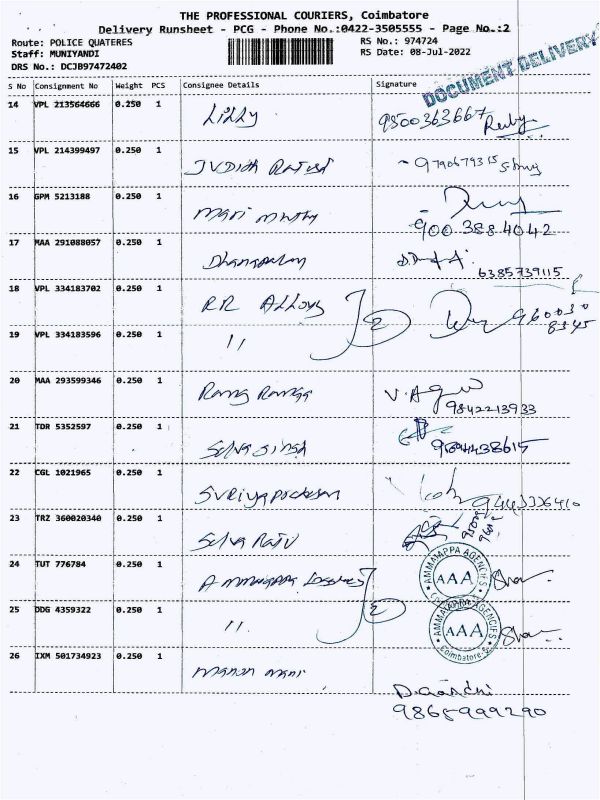 THE PROFESSIONAL COURIERS, Coimbatore
Delivery Runsheet - PCG - Phone No.:0422-3505555 - Page No.:2
Route: POLICE QUATERES RS No.: 974724
Staff: MUNIYANDI RS Date: 08-Jul-2022
DRS No.: DCJB97472402
DOCUMENT DELIVERY
S No Consignment No Weight PCS Consignee Details Signature
14 VPL 213564666 0.250 1 Lilly 9500363667 Ruby
15 VPL 214399497 0.250 1 9790679315
16 GPM 5213188 0.250 1 Mari 900 388 4042
17 MAA 291088057 0.250 1 Dhanapalan 6385739115
18 VPL 334183702 0.250 1 RR Alloys 2 960030 8345
19 VPL 334183596 0.250 1 "
20 MAA 293599346 0.250 1 9842213933
21 TDR 5352597 0.250 1 Selva Singh
22 CGL 1021965 0.250 1 9443336410
23 TRZ 360020340 0.250 1 Selva Raju
24 TUT 776784 0.250 1 Ammayappa 2 AMMAIAPPA AGENCIES AAA
25 DDG 4359322 0.250 1 " AMMAIAPPA AGENCIES AAA Coimbatore
26 IXM 501734923 0.250 1 Manon Mani
D.Gandhi
9865999290